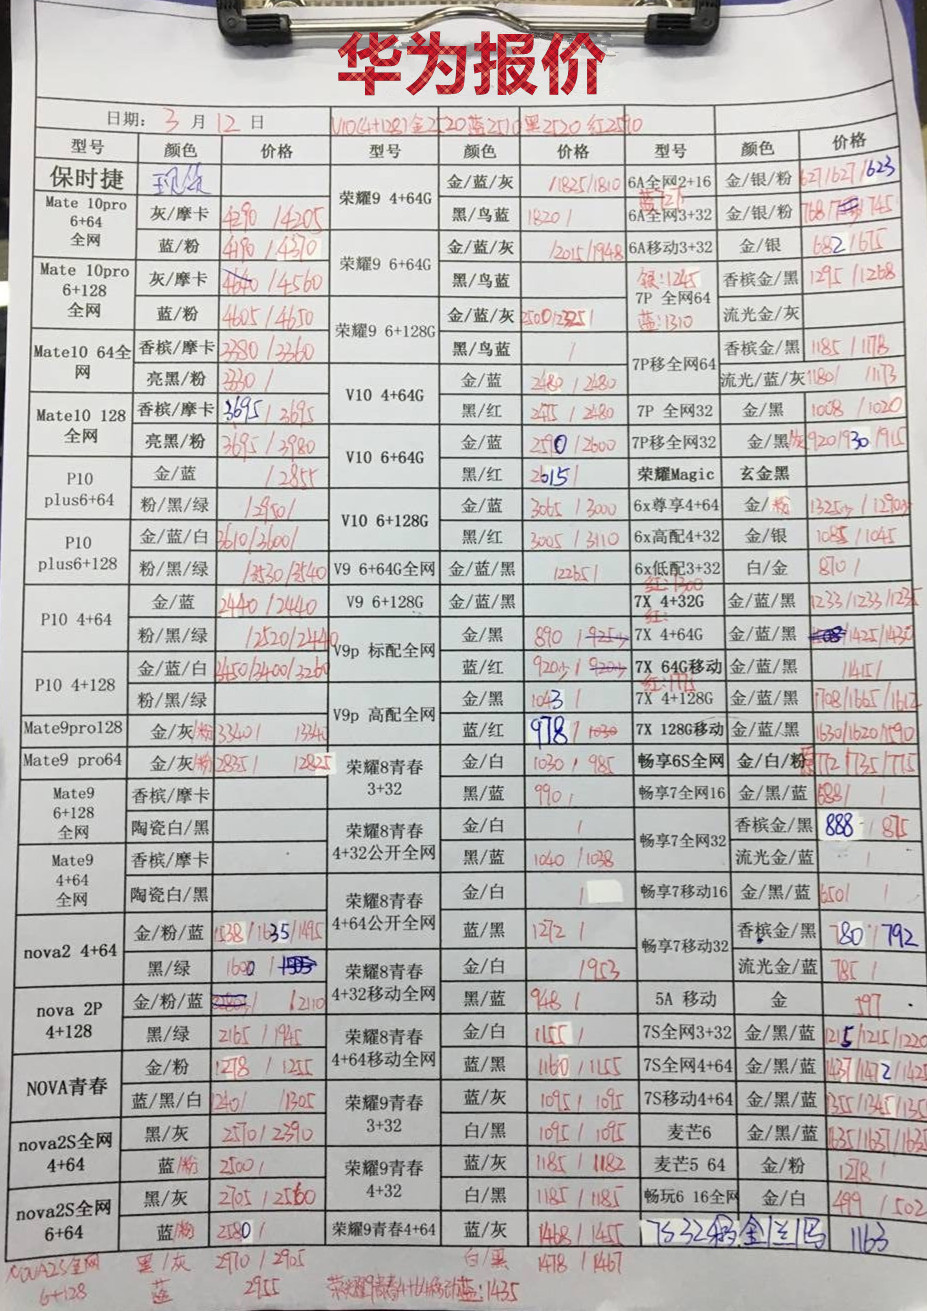 华为报价
日期: 3 月 12 日 V10(4+128)金2520蓝2510黑2520 红2590
型号 颜色 价格 型号 颜色 价格 型号 颜色 价格
保时捷 现货 荣耀9 4+64G 金/蓝/灰 /1825/1810 6A全网2+16 金/银/粉 627/627/623
Mate 10pro 6+64 全网 灰/摩卡 4290 /4205 黑/鸟蓝 1820/ 6A全网3+32 金/银/粉 768/ /745
蓝/粉 4190 /4370 荣耀9 6+64G 金/蓝/灰 /2015/1948 6A移动3+32 金/银 682/675
Mate 10pro 6+128 全网 灰/摩卡 4640/4560 黑/鸟蓝 7P 全网64 银:1245 香槟金/黑 1295 /1268
蓝/粉 4605/4650 荣耀9 6+128G 金/蓝/灰 蓝:1310 流光金/灰
Mate10 64全网 香槟/摩卡 3380/3360 黑/鸟蓝 / 7P移全网64 香槟金/黑 1185 /1178
亮黑/粉 3330 / V10 4+64G 金/蓝 2480 /2480 流光/蓝/灰 1180/ /1173
Mate10 128全网 香槟/摩卡 3695 / 3695 黑/红 2475 / 2480 7P 全网32 金/黑 1008 /1020
亮黑/粉 3695 / 3980 V10 6+64G 金/蓝 2590 /2600 7P移全网32 金/黑 920/930/915
P10 plus6+64 金/蓝 /2855 黑/红 2615/ 荣耀Magic 玄金黑
粉/黑/绿 /2950/ V10 6+128G 金/蓝 3065 / 3000 6x尊享4+64 金/粉
P10 plus6+128 金/蓝/白 3610/3600/ 黑/红 3005 / 3110 6x高配4+32 金/银 1085/1045
粉/黑/绿 /3530/3540 V9 6+64G全网 金/蓝/黑 /2265/ 6x低配3+32 白/金 870/
P10 4+64 金/蓝 2440 /2440 V9 6+128G 金/蓝/黑 红:1300 7X 4+32G 金/蓝/黑 1233/1233/1235
粉/黑/绿 /2520/2440 V9p 标配全网 金/黑 890 / 925 红: 7X 4+64G 金/蓝/黑 /1425/1430
P10 4+128 金/蓝/白 3450/3400/3260 蓝/红 920 / 920 7X 64G移动 金/蓝/黑 1415/
粉/黑/绿 V9p 高配全网 金/黑 1043 / 红:1775 7X 4+128G 金/蓝/黑 1708/1665 /1612
Mate9pro128 金/灰/粉 3340/ 3340 蓝/红 978/ 1030 7X 128G移动 金/蓝/黑 1630/1620/1590
Mate9 pro64 金/灰/粉 2835/ 2825 荣耀8青春 3+32 金/白 1030 / 985 畅享6S全网 金/白/粉 772/735/775
Mate9 6+128 全网 香槟/摩卡 黑/蓝 990 / 畅享7全网16 金/黑/蓝 688/ /
陶瓷白/黑 荣耀8青春 4+32公开全网 金/白 / 畅享7全网32 香槟金/黑 888 / 875
Mate9 4+64 全网 香槟/摩卡 黑/蓝 1040 / 1038 流光金/蓝 /
陶瓷白/黑 荣耀8青春 4+64公开全网 金/白 / 畅享7移动16 金/黑/蓝 650/ /
nova2 4+64 金/粉/蓝 1538/1635/1495 蓝/黑 1272 / 畅享7移动32 香槟金/黑 780/792
黑/绿 1600 / 荣耀8青春 4+32移动全网 金/白 /953 流光金/蓝 785 /
nova 2P 4+128 金/粉/蓝 /2110 黑/蓝 948 / 5A 移动 金 597
黑/绿 2165 /1945 荣耀8青春 4+64移动全网 金/白 1155 / 7S全网3+32 金/黑/蓝 1215/1215/1220
NOVA青春 金/粉 1278 / 1255 蓝/黑 1160 /1155 7S全网4+64 金/黑/蓝 1437/1472/1425
蓝/黑/白 1240/ /1305 荣耀9青春 3+32 蓝/灰 1095 / 1095 7S移动4+64 金/黑/蓝 1355/1345/135
nova2S全网 4+64 黑/灰 2570/2390 白/黑 1095 / 1095 麦芒6 金/黑/蓝 1635/1637/1635
蓝/粉 2500/ 荣耀9青春 4+32 蓝/灰 1185 / 1182 麦芒5 64 金/粉 1278 /
nova2S全网 6+64 黑/灰 2705 / 2560 白/黑 1185 / 1185 畅玩6 16全网 金/白 499 /502
蓝/粉 2580 / 荣耀9青春4+64 蓝/灰 1468 /1455 7S 324移 金/兰/黑 1163
NOVA2S全网 6+128 黑/灰 2970 / 2905 白/黑 1478 / 1467
蓝 2955 荣耀9青春4+64移动蓝:1435